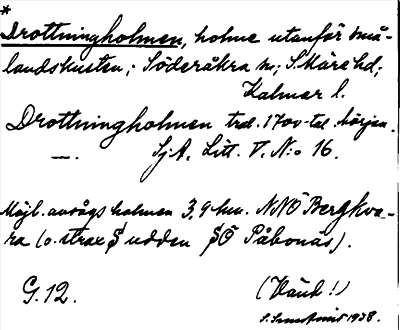 *
Drottningholmen, holme utanför små-
landskusten; Söderåkra sn; S. Möre hd;
Kalmar l.
Drottningholmen trol. 1700-tal. början.
—. SjA. Litt. V. N:o 16.
Möjl. avsågs holmen 3,9 km. NNÖ Bergkva-
ra (o. strax S udden SÖ Påbonäs).
G. 12. (Vänd!)
1938.